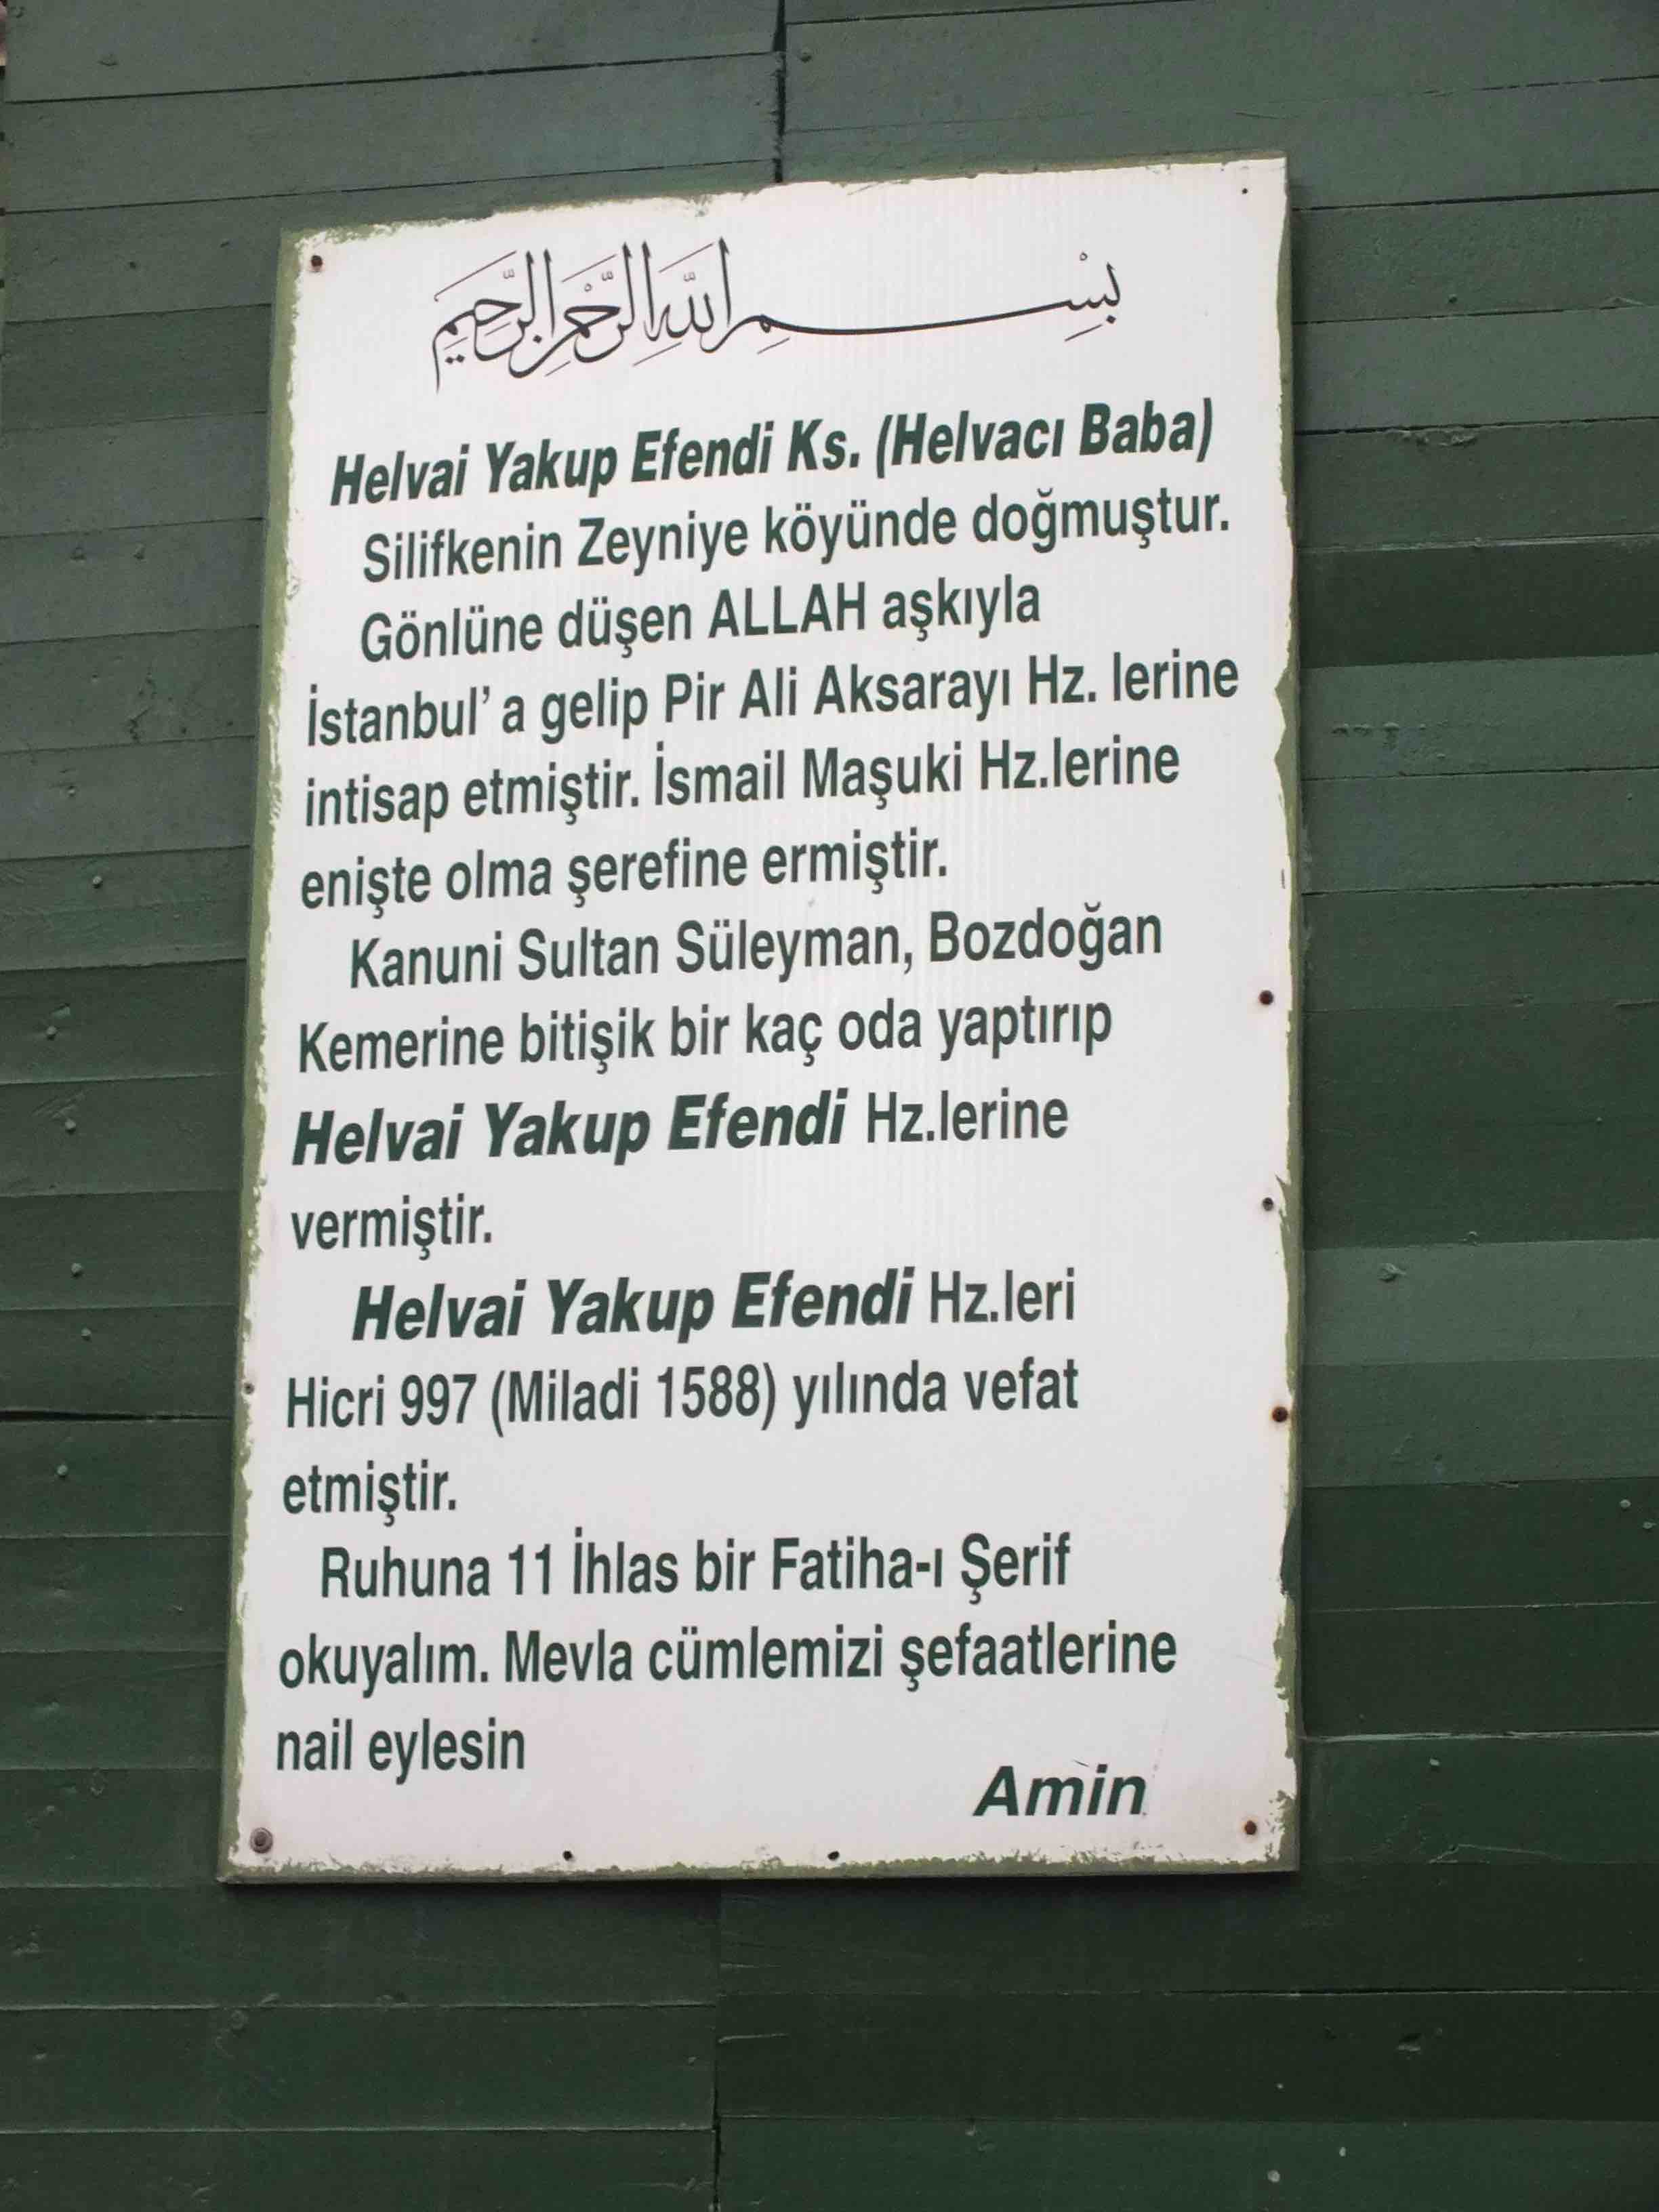 بِسْمِ اللَّهِ الرَّحْمَنِ الرَّحِيمِ
Helvai Yakup Efendi Ks. (Helvacı Baba)
Silifkenin Zeyniye köyünde doğmuştur.
Gönlüne düşen ALLAH aşkıyla
İstanbul' a gelip Pir Ali Aksarayı Hz. lerine
intisap etmiştir. İsmail Maşuki Hz.lerine
enişte olma şerefine ermiştir.
Kanuni Sultan Süleyman, Bozdoğan
Kemerine bitişik bir kaç oda yaptırıp
Helvai Yakup Efendi Hz.lerine
vermiştir.
Helvai Yakup Efendi Hz.leri
Hicri 997 (Miladi 1588) yılında vefat
etmiştir.
Ruhuna 11 İhlas bir Fatiha-ı Şerif
okuyalım. Mevla cümlemizi şefaatlerine
nail eylesin
Amin